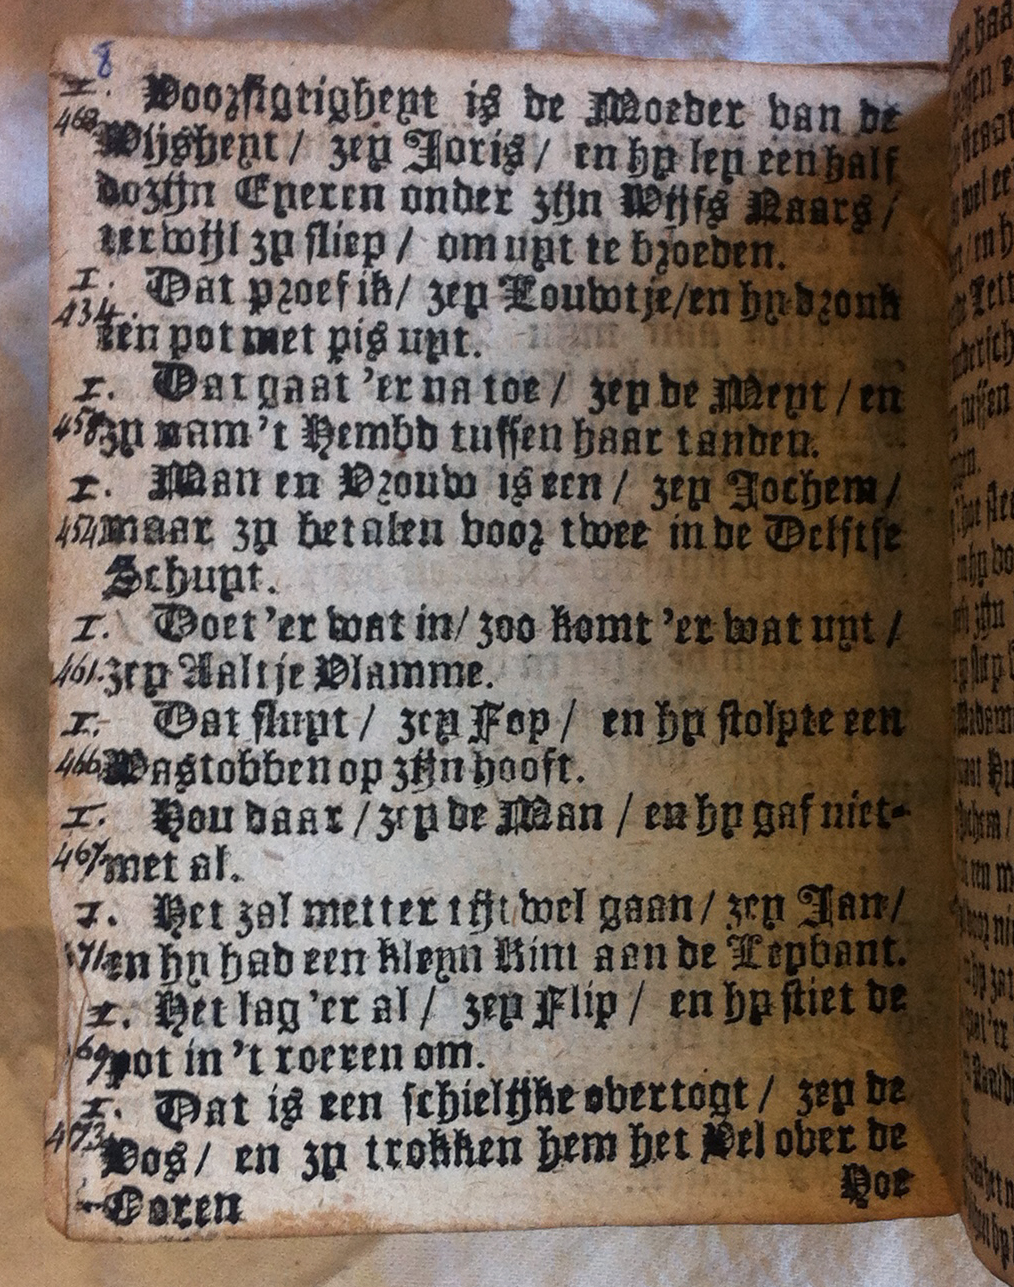 8
I. Voorsigtigheyt is de Moeder van de
468. Wijsheyt / zey Joris / en hy ley een half
dozijn Eyeren onder zijn Wijfs Naars /
terwijl zy sliep / om uyt te broeden.
I. Dat proef ik / zey Louwtje / en hy dronk
434. een pot met pis uyt.
I. Dat gaat 'er na toe / zey de Meyt / en
458 zy nam 't Hembd tussen haar tanden.
I. Man en Vrouw is een / zey Jochem /
454 maar zy betalen voor twee in de Delftse
Schuyt.
I. Doet 'er wat in / zoo komt 'er wat uyt /
461. zey Aaltje Vlamme.
I. Dat sluyt / zey Fop / en hy stolpte een
466 Wastobben op zijn hooft.
I. Hou daar / zey de Man / en hy gaf niet-
467. met al.
I. Het zal metter tijt wel gaan / zey Jan /
471 en hy had een kleyn Kint aan de Leybant.
I. Het lag 'er al / zey Flip / en hy stiet de
69 pot in 't roeren om.
I. Dat is een schielijke overtogt / zey de
473 Vos / en zy trokken hem het Vel over de
Ooren
Hoe